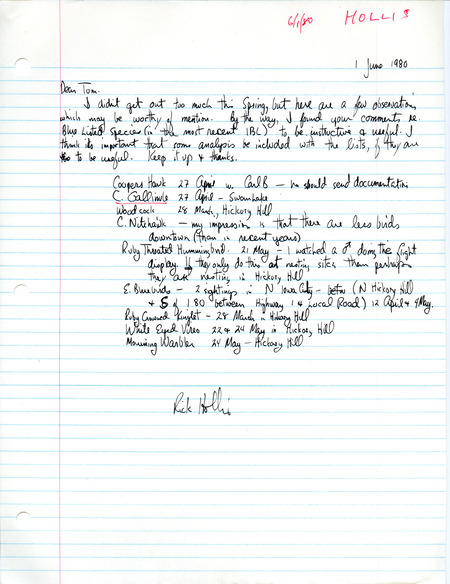 6/1/80 HOLLIS
1 June 1980
Dear Tom.
I didn't get out too much this Spring, but here are a few observations,
which may be worthy of mention. By the way, I found your comments re.
Blue Listed Species (in the most recent IBL) to be instructive & useful. I
think its important that some analysis be included with the lists, if they are
to be useful. Keep it up & thanks.
Coopers Hawk 27 April w. Carl B – he should send documentation
C. Gallinule 27 April – Swan Lake
Woodcock 28 March, Hickory Hill
C. Nitehawk – my impression is that there are less birds
downtown (than in recent years)
Ruby Throated Hummingbird. 21 May – I watched a ♂ doing the flight
display. If they only do this at nesting sites then perhaps
they are nesting in Hickory Hill
E. Bluebirds – 2 sightings in N Iowa City – (N Hickory Hill
& S of I 80 between Highway 1 & Local Road) 12 April & 4 May.
Ruby Crowned Kinglet – 28 March in Hickory Hill
White Eyed Vireo 22 & 24 May in Hickory Hill
Mourning Warbler 24 May – Hickory Hill
Rick Hollis